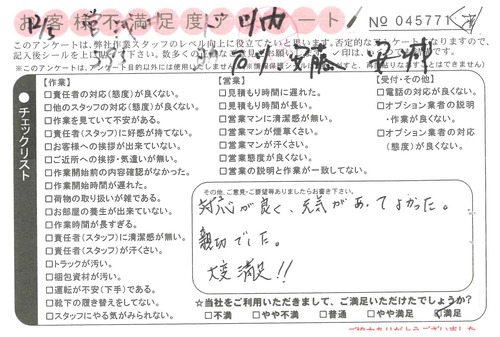 お客様不満足度アンケート
No 045771
このアンケートは、弊社作業スタッフのレベル向上に役立てたいと思います。否定的な
※このアンケートは、アンケート目的以外には使用いたしません
【作業】
□責任者の対応(態度)が良くない。
□他のスタッフの対応(態度)が良くない。
□作業を見ていて不安がある。
□責任者(スタッフ)に好感が持てない。
□お客様への挨拶が出来ていない。
□ご近所への挨拶・気遣いが無い。
□作業開始前の内容確認がなかった。
□作業開始時間が遅れた。
□荷物の取り扱いが雑である。
□お部屋の養生が出来ていない。
□作業時間が長すぎる。
□責任者(スタッフ)に清潔感が無い。
□責任者(スタッフ)が汗くさい。
□トラックが汚い。
□梱包資材が汚い。
□運転が不安(下手)である。
□靴下の履き替えをしてない。
□スタッフにやる気がみられない。
【営業】
□見積もり時間に遅れた。
□見積もり時間が長い。
□営業マンに清潔感が無い。
□営業マンが煙草くさい。
□営業マンが汗くさい。
□営業態度が良くない。
□営業の説明と作業が一致してない。
【受付・その他】
□電話の対応が良くない。
□オプション業者の説明
・作業が良くない。
□オプション業者の対応
(態度)が良くない。
● チェックリスト
その他、ご意見・ご要望等ありましたらお書き下さい。
対応が良く、元気があってよかった。
親切でした。
大変満足!!
☆当社をご利用いただきまして、ご満足いただけたでしょうか?
□不満 □やや不満 □普通 □やや満足 ☑満足
ご協力ありがとうございました